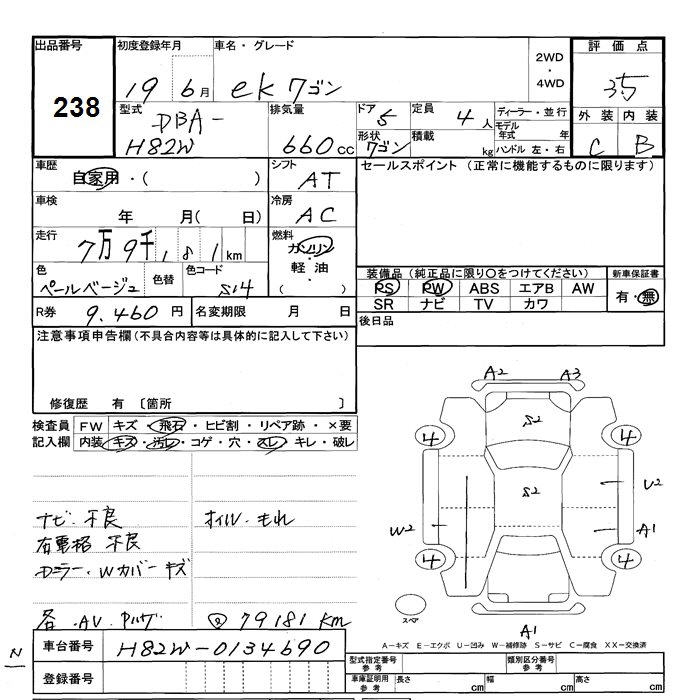 出品番号 初度登録年月 車名・グレード 2WD・4WD 評価点
238 19 6月 ekワゴン 35
型式 排気量 ドア 定員 ディーラー・並行 外装 内装
DBA-H82W 660cc 5 4人 モデル年式 年 C B
形状 ワゴン 積載 kg ハンドル 左・右
車歴 シフト セールスポイント (正常に機能するものに限ります)
自家用・( ) AT
車検 冷房
年 月( 日) AC
走行 燃料
7万9千181km ガソリン・軽油・( )
色 色替 色コード 装備品 (純正品に限り〇をつけてください) 新車保証書
ペールベージュ S14 PS PW ABS エアB AW 有・無
SR ナビ TV カワ
R券 9,460円 名変期限 月 日 後日品
注意事項申告欄(不具合内容等は具体的に記入して下さい)
修復歴 有 〔箇所 〕
検査員記入欄 FW キズ・飛石・ヒビ割・リペア跡・×要
内装 キズ・汚レ・コゲ・穴・スレ・キレ・破レ
A2 A3
S2
4 4
S2 U2
W2 A1
4 4
スペア
A1
ナビ 不良 オイル・もれ
右電格 不良
ミラー・Wカバーキズ
各・AV
79181km
N
車台番号 H82W-0134690
登録番号
A-キズ E-エクボ U-凹み W-補修跡 S-サビ C-腐食 XX-交換済
型式指定番号参考 類別区分番号参考
車庫証明用参考 長さ cm 幅 cm 高さ cm